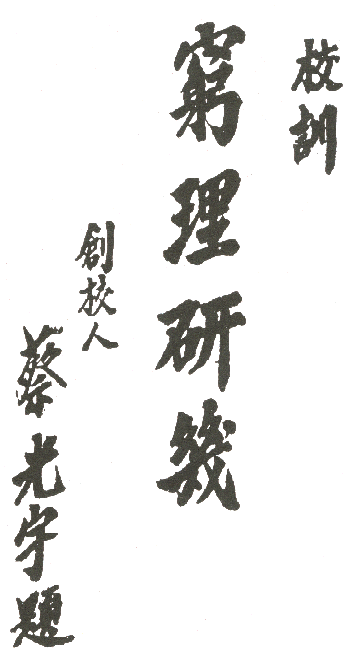 校訓
窮理研幾
創校人
蔡光宇題